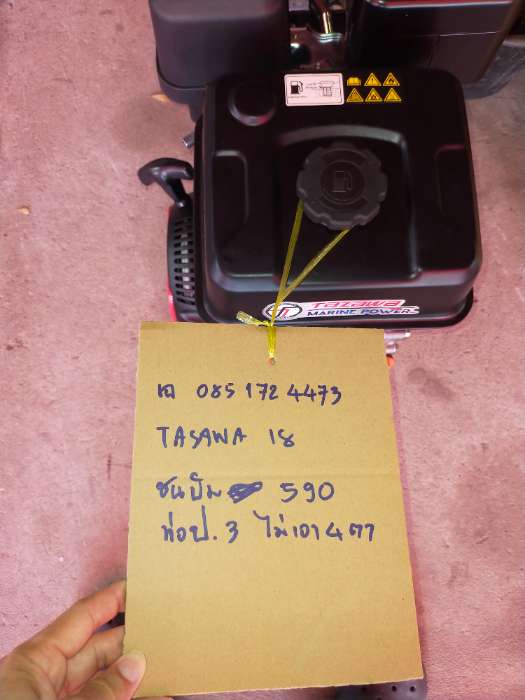 Tazawa
MARINE POWER
เฉ 085 172 4473
TASAWA 18
ชนปั๊ม 590
ท่อป. 3 ไม่เอา 4 ตา